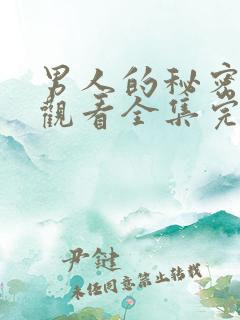 男人的秘密
觀看全集完
尹健
未径同意禁止转载